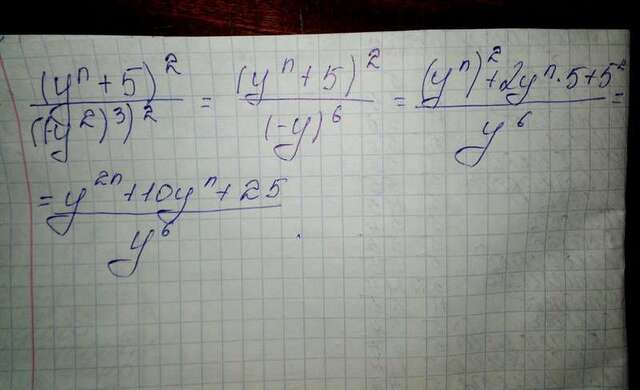 (yⁿ + 5)² / ((-y²)³)² = (yⁿ + 5)² / (-y)⁶ = (yⁿ)² + 2yⁿ · 5 + 5² / y⁶ =
= y²ⁿ + 10yⁿ + 25 / y⁶